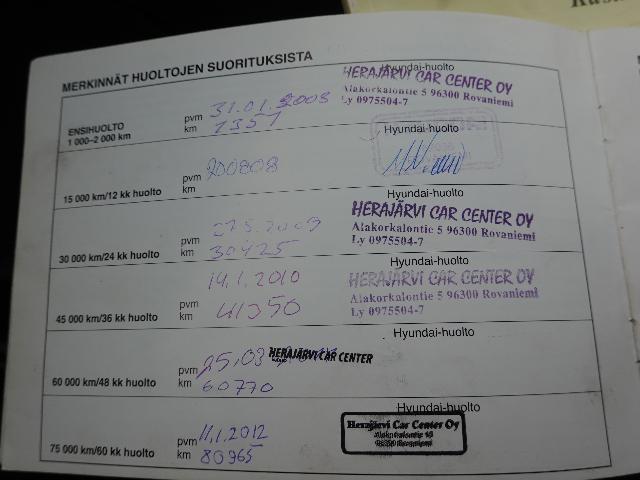 MERKINNÄT HUOLTOJEN SUORITUKSISTA
ENSIHUOLTO
1 000–2 000 km
pvm 31.01.2008
km 1351
Hyundai-huolto
HERAJÄRVI CAR CENTER OY
Alakorkalontie 5 96300 Rovaniemi
Ly 0975504-7
15 000 km/12 kk huolto
pvm 200808
km
Hyundai-huolto
30 000 km/24 kk huolto
pvm 27.5.2009
km 30425
Hyundai-huolto
HERAJÄRVI CAR CENTER OY
Alakorkalontie 5 96300 Rovaniemi
Ly 0975504-7
45 000 km/36 kk huolto
pvm 14.1.2010
km 41350
Hyundai-huolto
HERAJÄRVI CAR CENTER OY
Alakorkalontie 5 96300 Rovaniemi
Ly 0975504-7
60 000 km/48 kk huolto
pvm 25.03
km 60770
Hyundai-huolto
HERAJÄRVI CAR CENTER
75 000 km/60 kk huolto
pvm 11.1.2012
km 80965
Hyundai-huolto
Herajärvi Car Center Oy